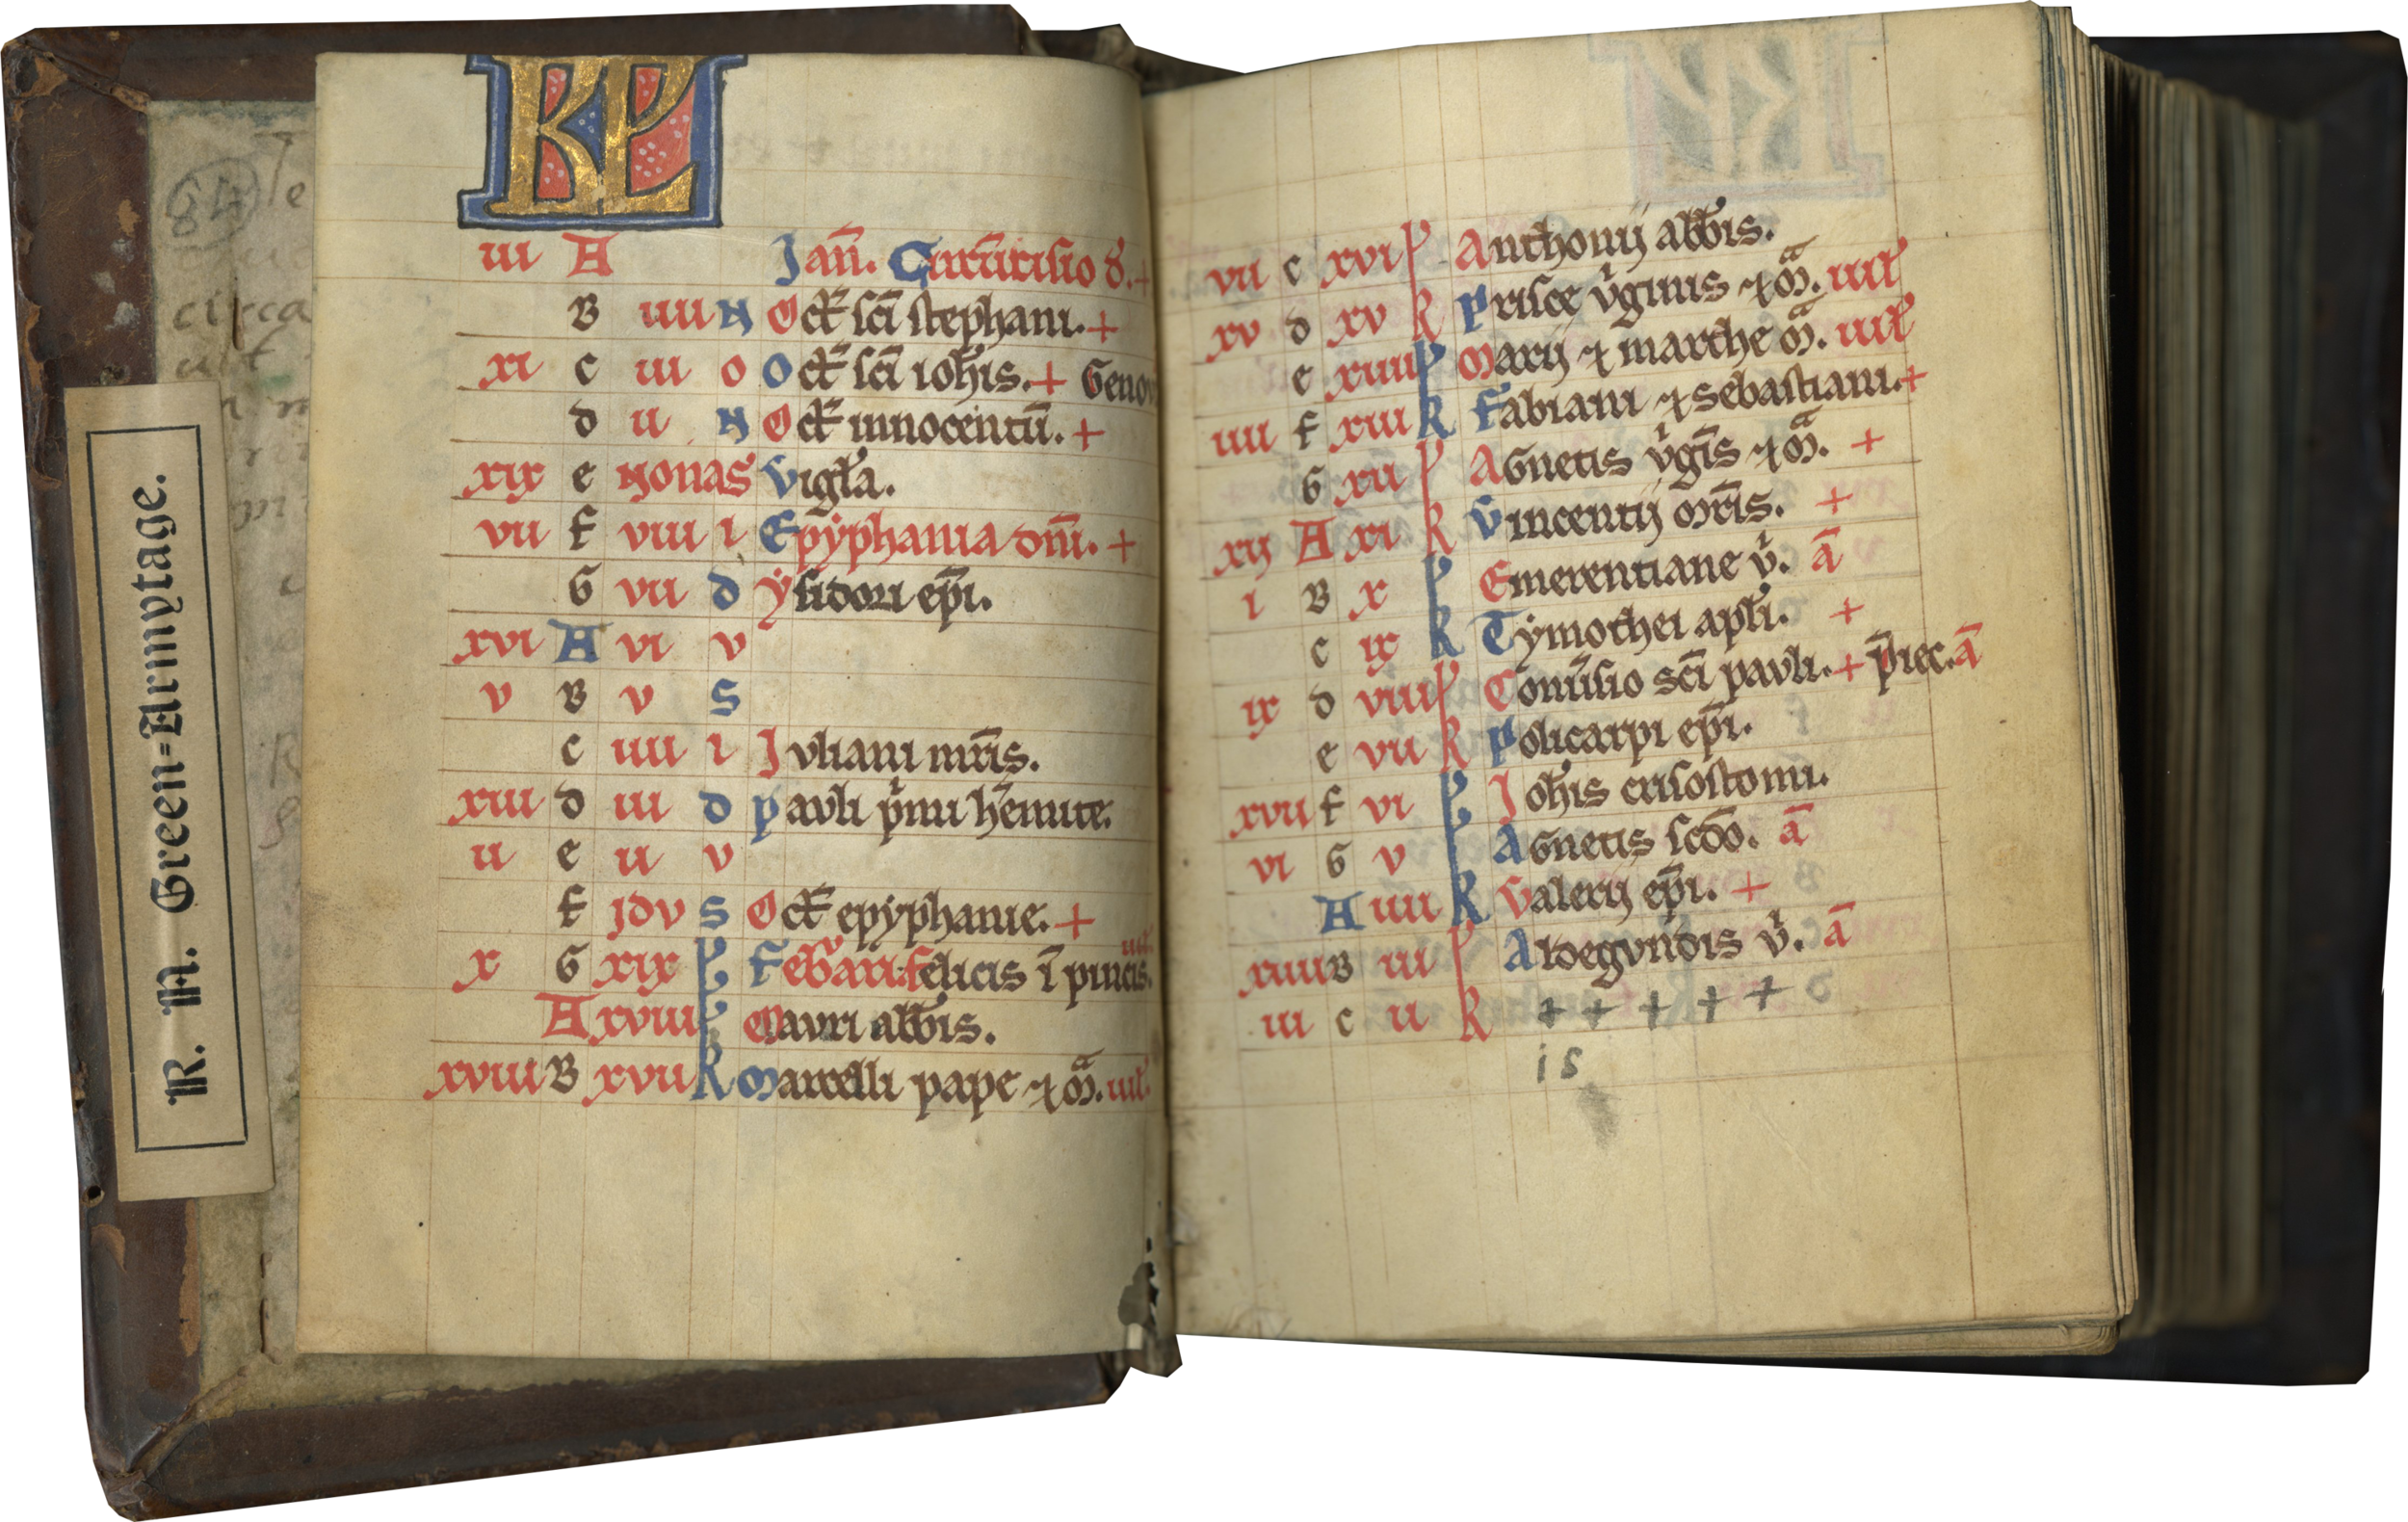 R. N. Green-Armytage.
84
circa
KL
iii A Jan̄. Circūcisio d̄.+
B iiii N Oct̄ sc̄i stephani.+
xi c iii O Oct̄ sc̄i ioh̄is.+ Genov
d ii N Oct̄ innocentū.+
xix e Nonas Vigl̄a.
vii f viii i Epyphania dn̄i.+
G vii d ysidori ep̄i.
xvi A vi v
v B v s
c iiii i Juliani mr̄is.
xiii d iii d pauli p̄mi h̄emite.
ii e ii v
f jdv s Oct̄ epyphanie.+
x G xix k Feb̄arii. felicis ī pincis. iii.
A xviii k Mauri abb̄is.
xviii B xvii k Marcelli pape ⁊ m̄. iiii.
vii c xvi k Anthonij abb̄is.
xv d xv k Prisce v̄ginis ⁊ m̄. iiii
e xiiii k Marij ⁊ marthe m̄. iiii
iiii f xiii k Fabiani ⁊ sebastiani.+
G xii k Agnetis v̄gīs ⁊ m̄. +
xij A xi k Vincentij mr̄is. +
i B x k Emerentiane v̄. ā
c ix k Tymothei apl̄i. +
ix d viii k Conv̄sio sc̄i pauli.+ p̄iec.ā
e vii k Policarpi ep̄i.
xvii f vi k Joh̄is crisostomi.
vi G v k Agnetis scd̄o. ā
A iiii k Valerij ep̄i. +
xiiii B iii k Aldegundis v̄. ā
iii c ii k + + + + +
is